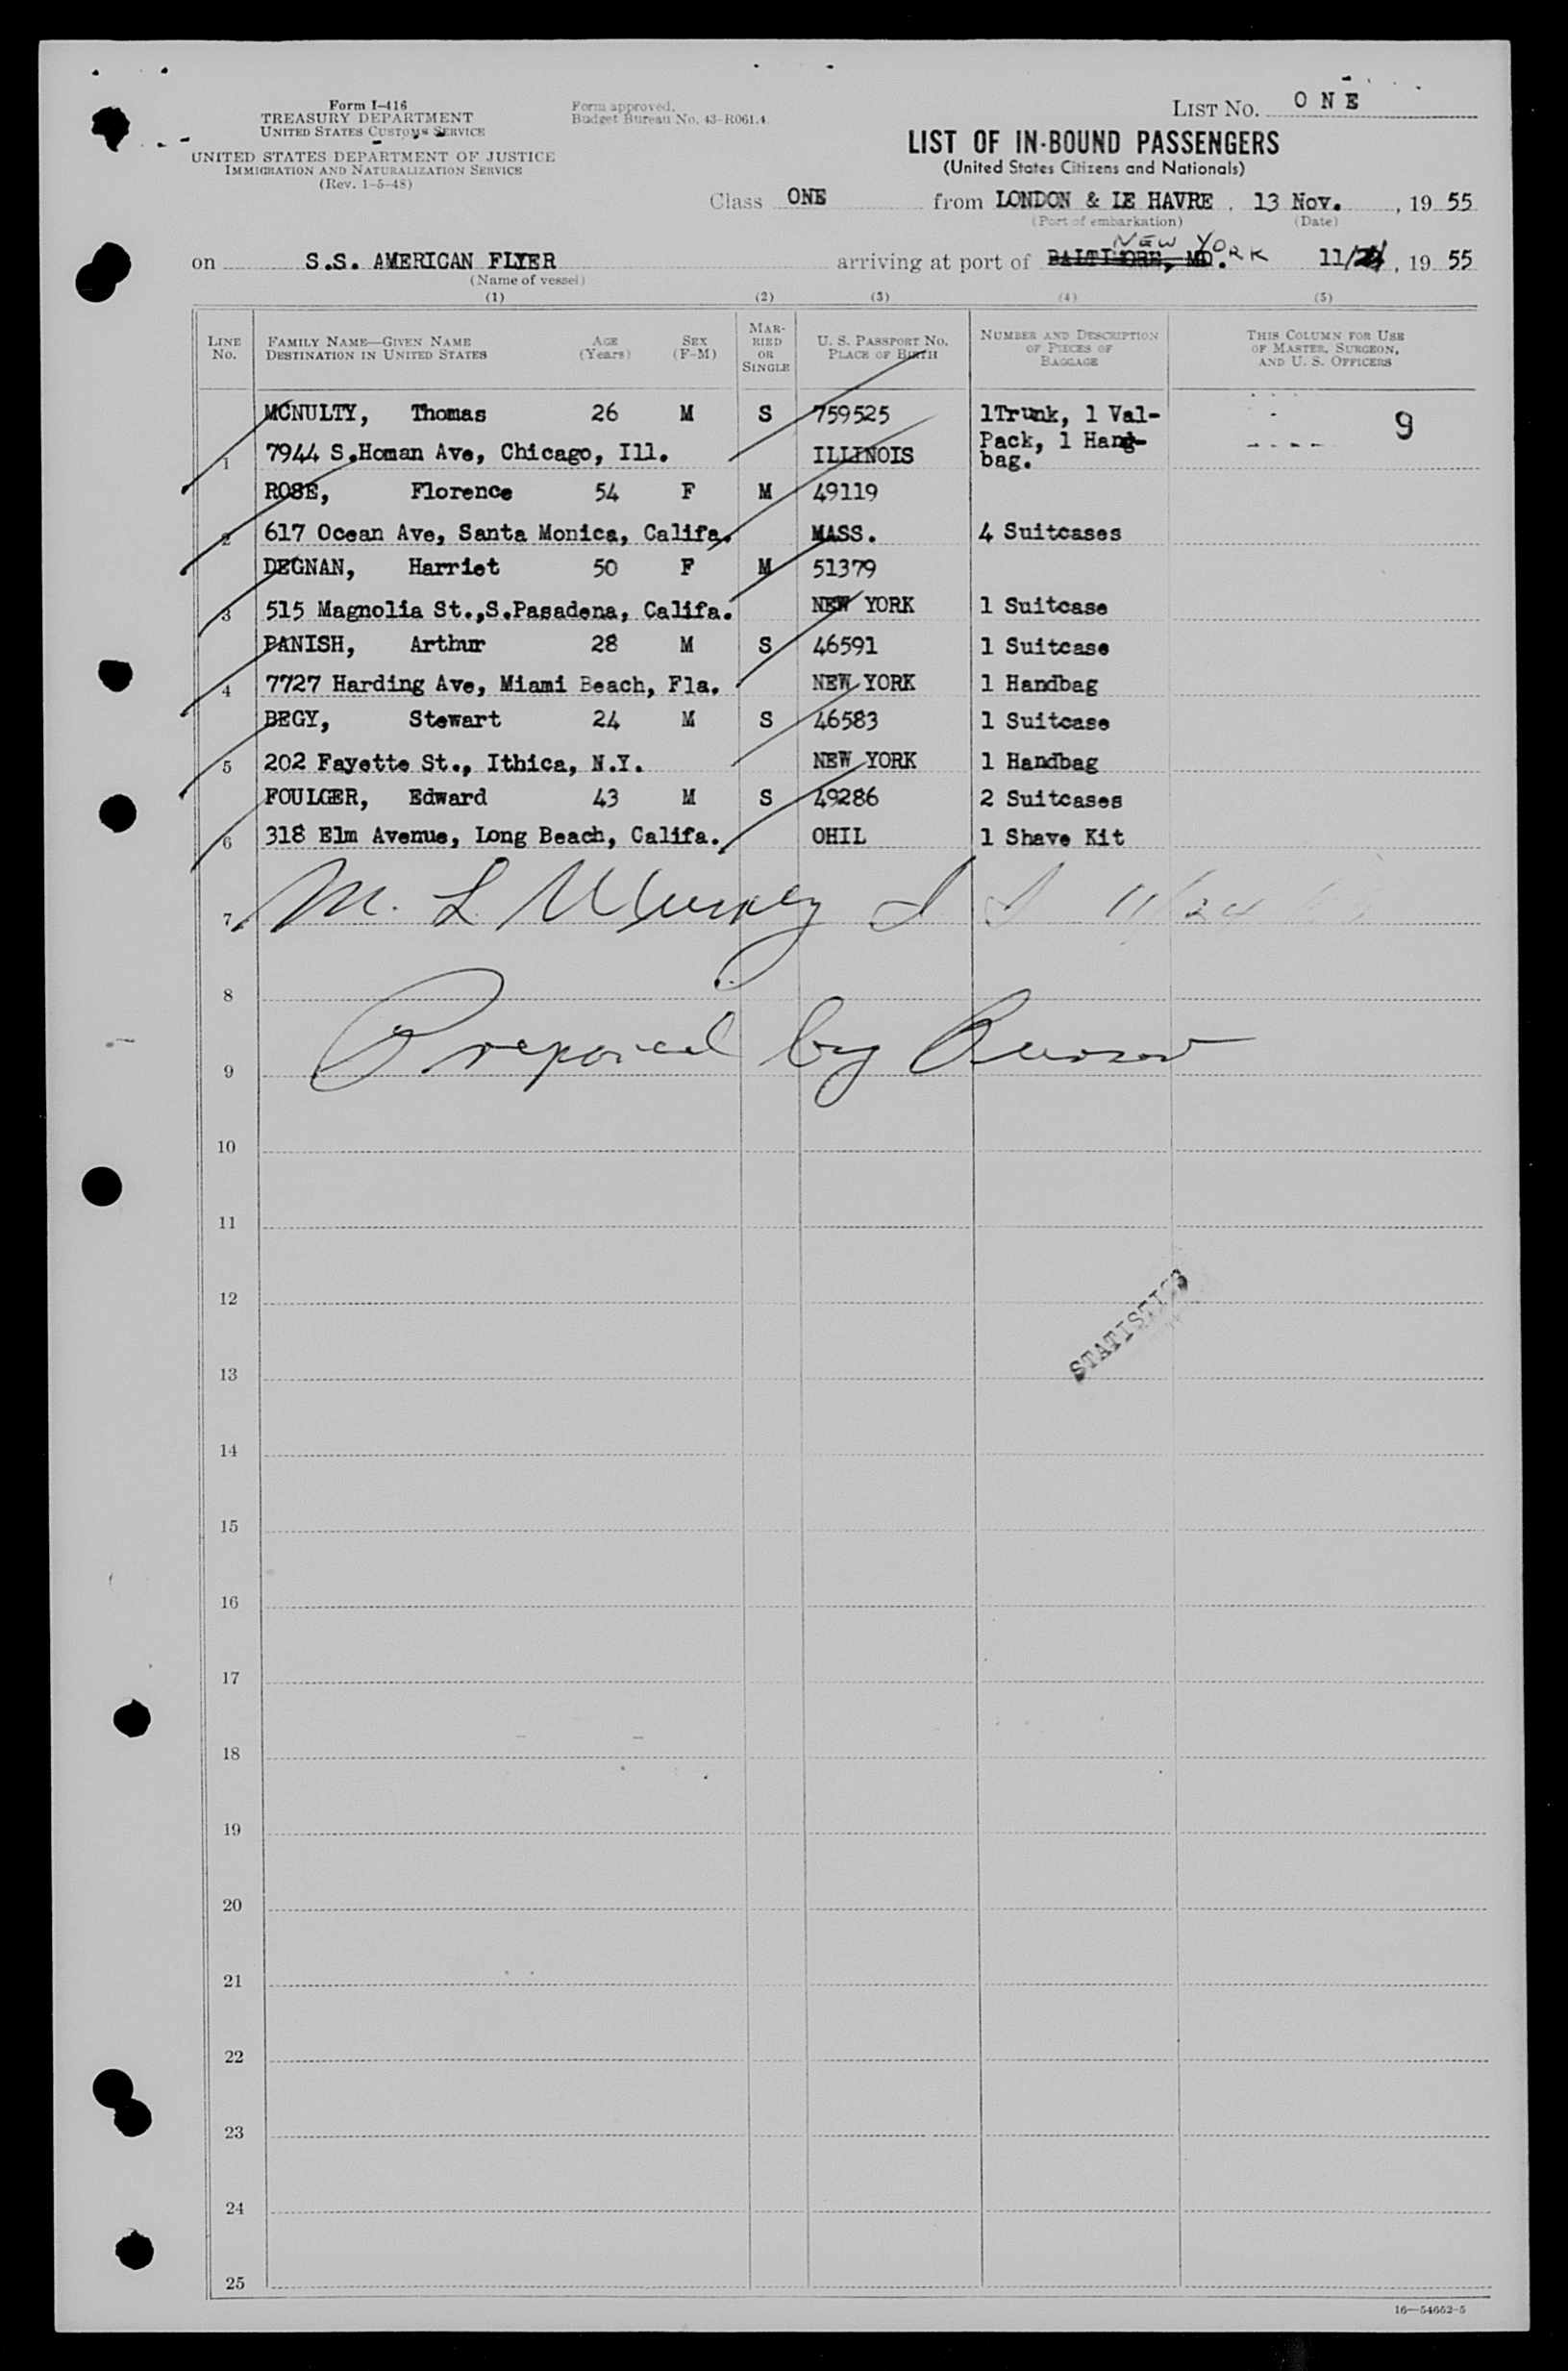 Form I-416
TREASURY DEPARTMENT
UNITED STATES CUSTOMS SERVICE
UNITED STATES DEPARTMENT OF JUSTICE
IMMIGRATION AND NATURALIZATION SERVICE
(Rev. 1-5-48)
Form approved.
Budget Bureau No. 43-R061.4.
LIST NO. ONE
LIST OF IN-BOUND PASSENGERS
(United States Citizens and Nationals)
Class ONE from LONDON & LE HAVRE, 13 Nov., 19 55
(Port of embarkation) (Date)
NEW YORK
on S.S. AMERICAN FLYER arriving at port of BALTIMORE, MD. 11/24, 19 55
(Name of vessel)
(1) (2) (3) (4) (5)
LINE No. FAMILY NAME—GIVEN NAME DESTINATION IN UNITED STATES AGE (Years) SEX (F-M) MARRIED OR SINGLE U. S. PASSPORT NO. PLACE OF BIRTH NUMBER AND DESCRIPTION OF PIECES OF BAGGAGE THIS COLUMN FOR USE OF MASTER, SURGEON, AND U. S. OFFICERS
MCNULTY, Thomas 26 M S 759525 1Trunk, 1 Val-
9
Pack, 1 Hand-
1 7944 S.Homan Ave, Chicago, Ill. ILLINOIS bag.
ROSE, Florence 54 F M 49119
2 617 Ocean Ave, Santa Monica, Califa. MASS. 4 Suitcases
DEGNAN, Harriet 50 F M 51379
3 515 Magnolia St.,S.Pasadena, Califa. NEW YORK 1 Suitcase
PANISH, Arthur 28 M S 46591 1 Suitcase
4 7727 Harding Ave, Miami Beach, Fla. NEW YORK 1 Handbag
BEGY, Stewart 24 M S 46583 1 Suitcase
5 202 Fayette St., Ithica, N.Y. NEW YORK 1 Handbag
FOULGER, Edward 43 M S 49286 2 Suitcases
6 318 Elm Avenue, Long Beach, Califa. OHIL 1 Shave Kit
7 M. L 11/24
8
Prepaid by
9
10
11
12
STATISTICS
13
14
15
16
17
18
19
20
21
22
23
24
25
16—54652-5